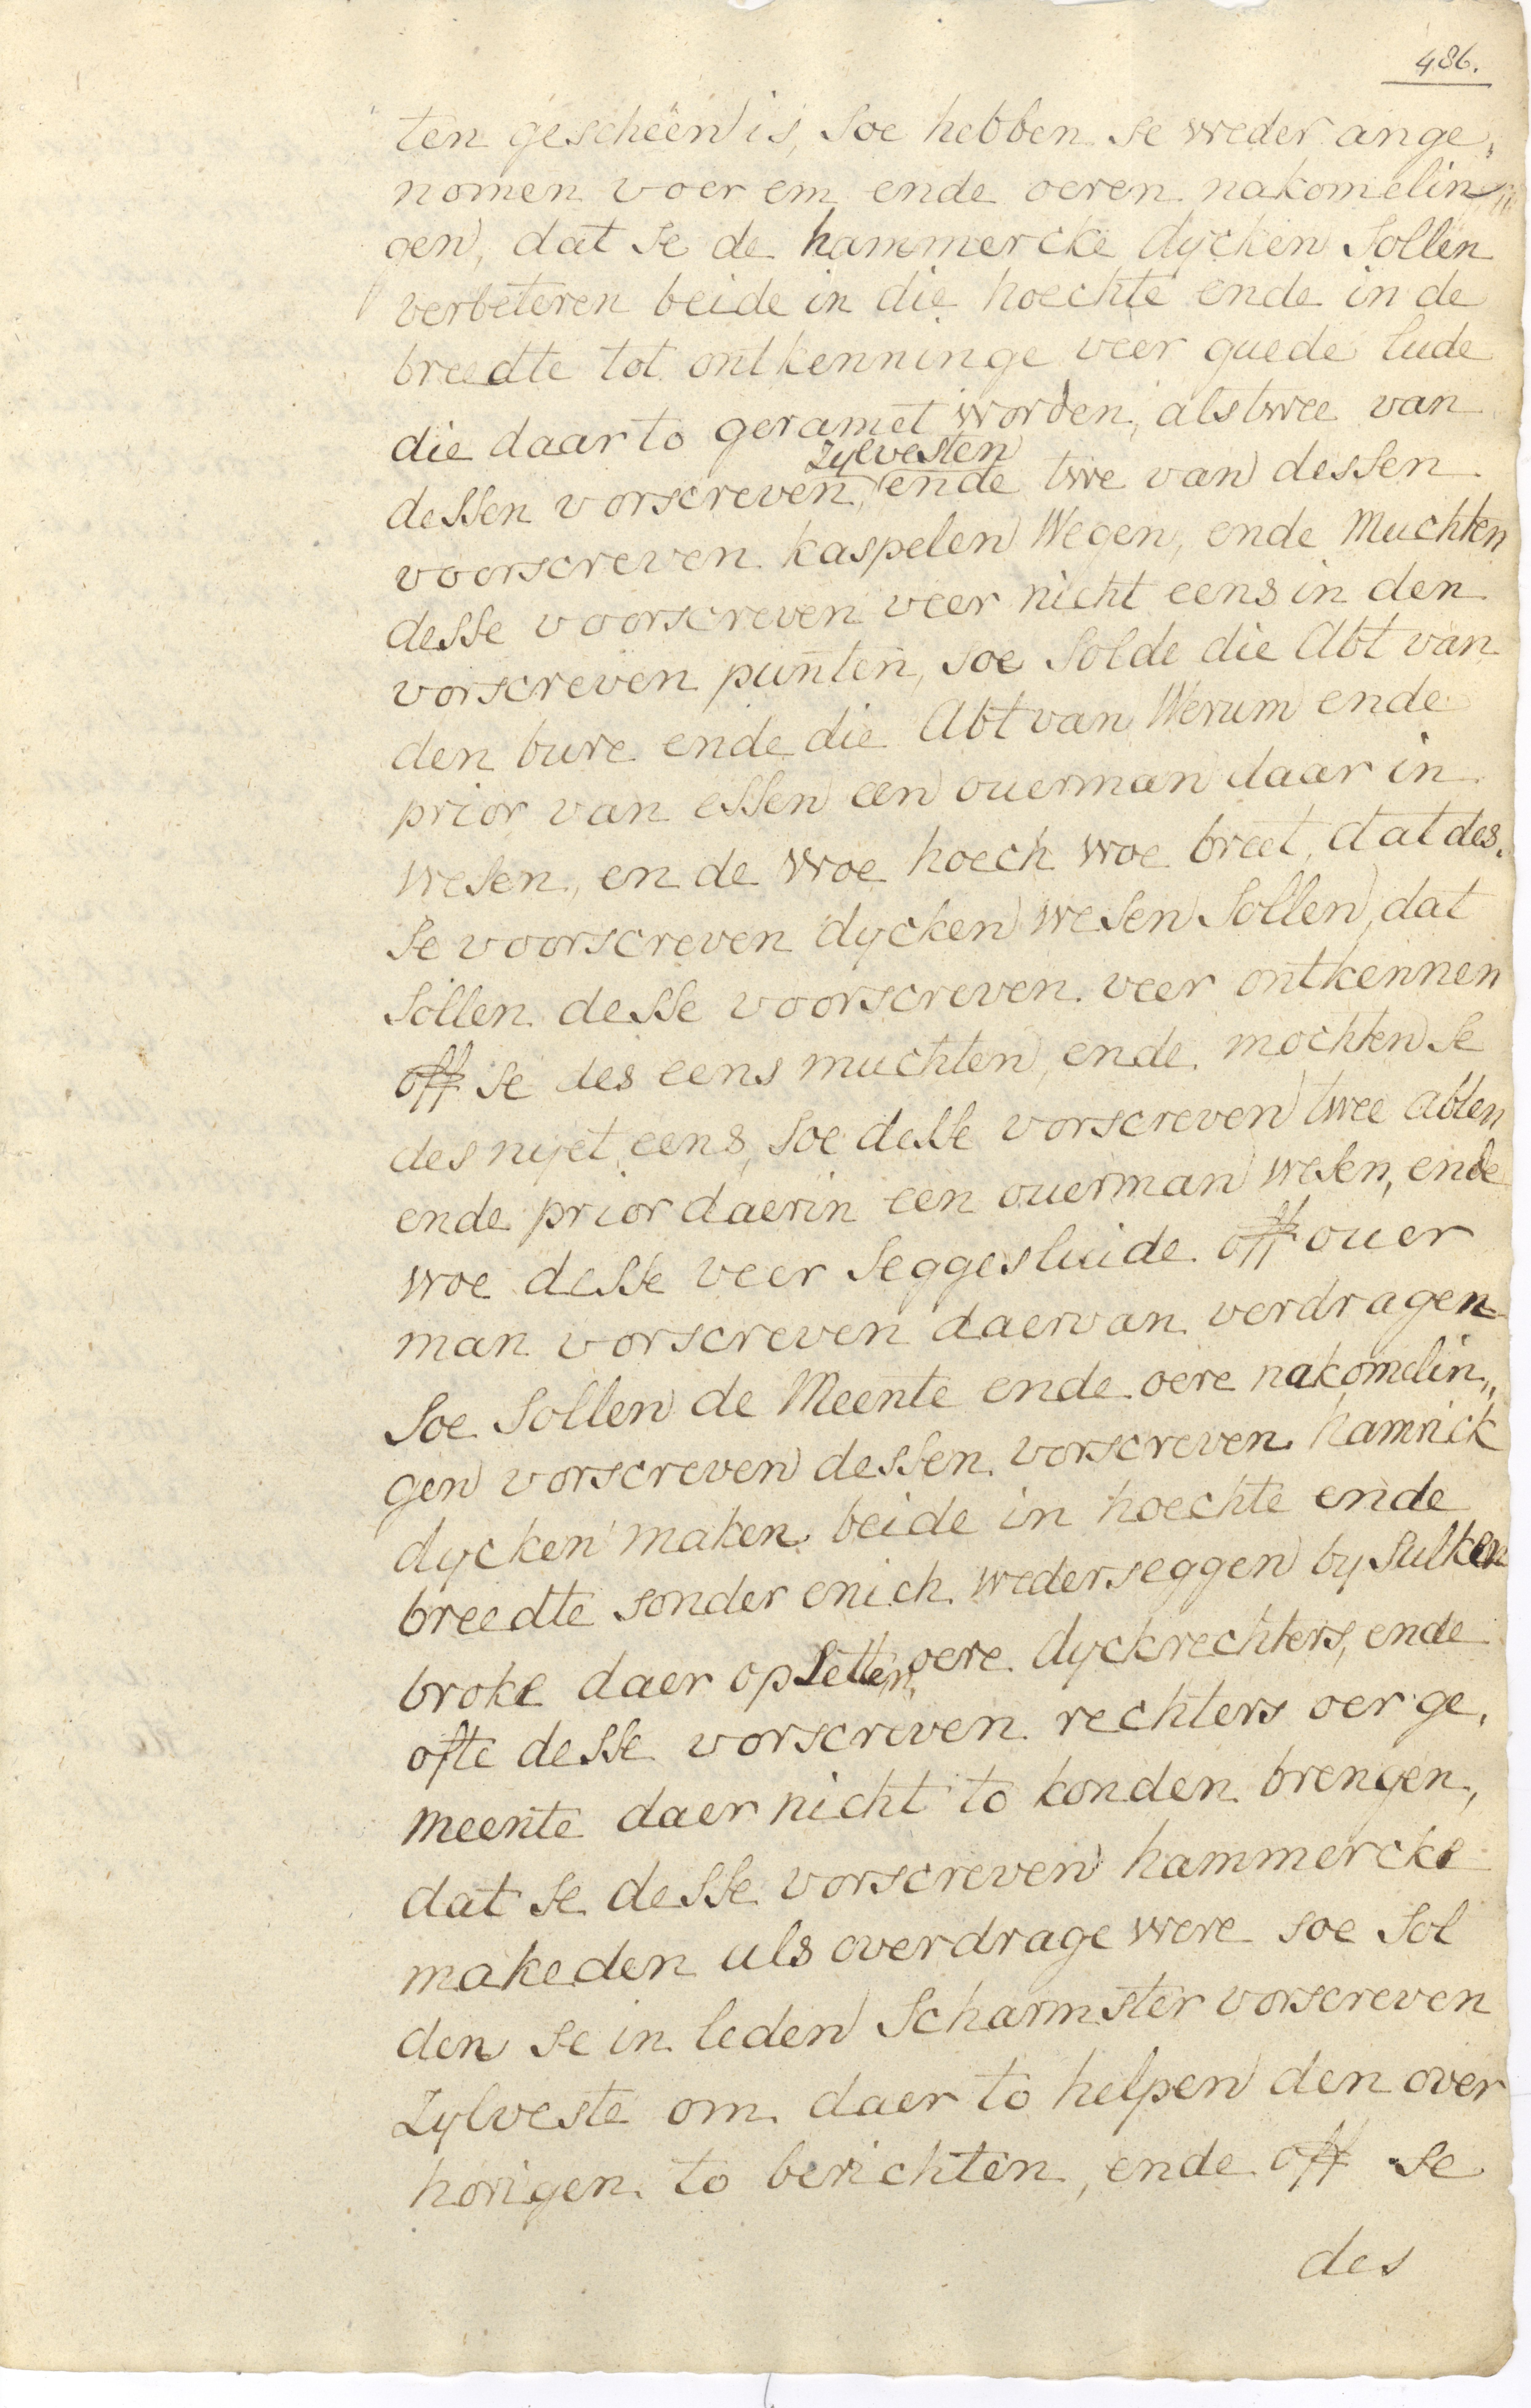 486.
ten gescheen is, soe hebben se weder ange„
nomen voer em ende oeren nakomelin„
gen, dat se de hammercke dycken sollen
verbeteren beide in die hoechte ende in de
breedte tot ontkenninge veer guede lude
die daar to geramet worden, als twee van
zylvesten
dessen vorscreven, ende twe van dessen
voorscreven kaspelen Wegen, ende Muchten
desse voorscreven veer nicht eens in den
vorscreven punten, soe solde die Abt van
den bure ende die Abt van Werum ende
prior van essen een ouerman daar in
wesen, ende woe hoech woe breet, dat des„
se voorscreven dycken wesen sollen, dat
sollen desse voorscreven veer ontkennen
off se des eens muchten, ende mochten se
des nyet eens, soe desse vorscreven twee abten
ende prior daerin een ouerman wesen, ende
woe desse veer seggesluide off ouer
man vorscreven daervan verdragen
soe sollen de Meente ende oere nakomelin„
gen vorscreven dessen vorscreven hamrick
dycken maken beide in hoechte ende
breedte sonder enich wederseggen by sulken
broke daer op setten, oere dyckrechters, ende
ofte desse vorscreven rechters oer ge„
meente daer nicht to konden brengen,
dat se desse vorscreven hammercke
makeden als overdrage were soe sol
den se in leden Scharmster vorscreven
zylveste om daer to helpen den over
horigen to berichten, ende off se
des